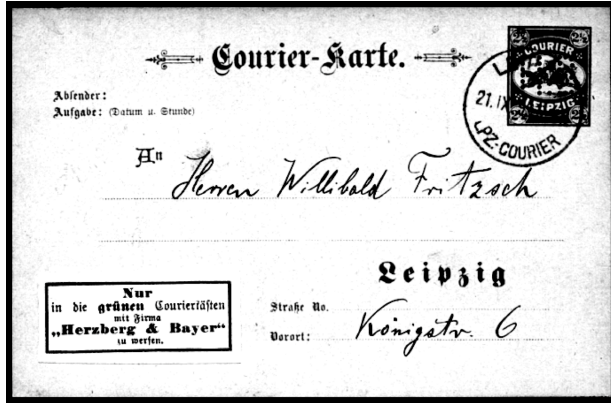 Courier-Karte.
COURIER
LEIPZIG
2½ 2½
2½ 2½
21. IX
LPZ.-COURIER
Absender:
Aufgabe: (Datum u. Stunde)
An
Herren Willibald Fritzsch
Leipzig
Straße No.
Königstr. 6
Vorort:
Nur
in die grünen Courierkästen
mit Firma
„Herzberg & Bayer“
zu werfen.